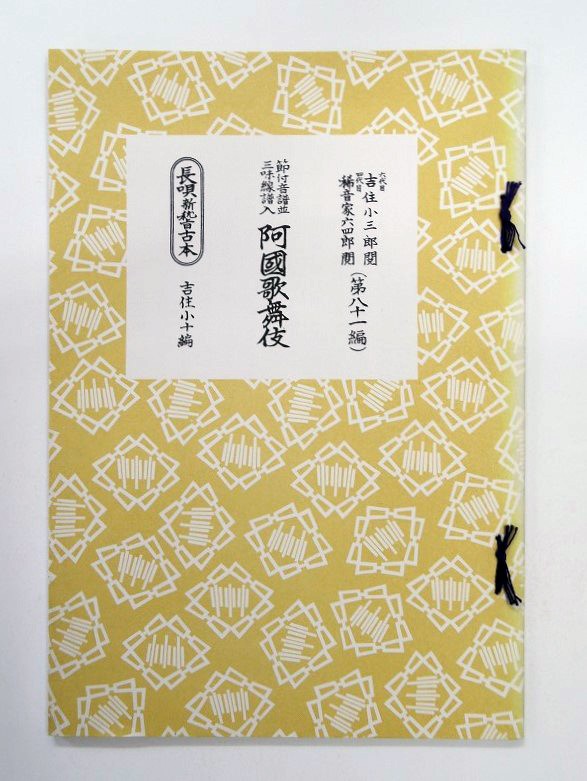 六代目 吉住小三郎閲
四代目 稀音家六四郎閲
(第八十一編)
節付音譜並
三味線譜入
阿國歌舞伎
長唄新稽古本
吉住小十編